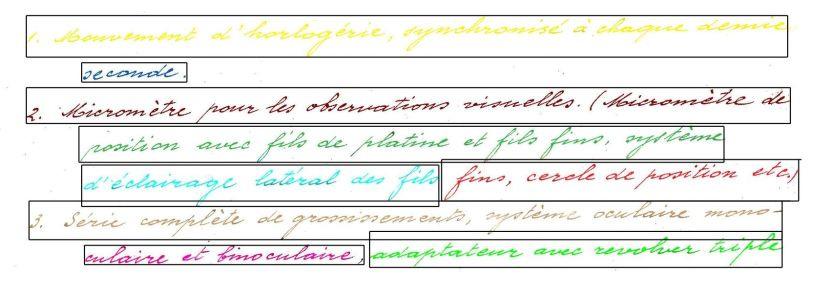 1. Mouvement d'horlogérie, synchronisé à chaque demie
seconde.
2. Micromètre pour les observations visuelles. (Micromètre de
position avec fils de platine et fils fins, système
d'éclairage latéral des fils fins, cercle de position etc.)
3. Série complète de grossissements, système oculaire mono-
culaire et binoculaire, adaptateur avec revolver triple